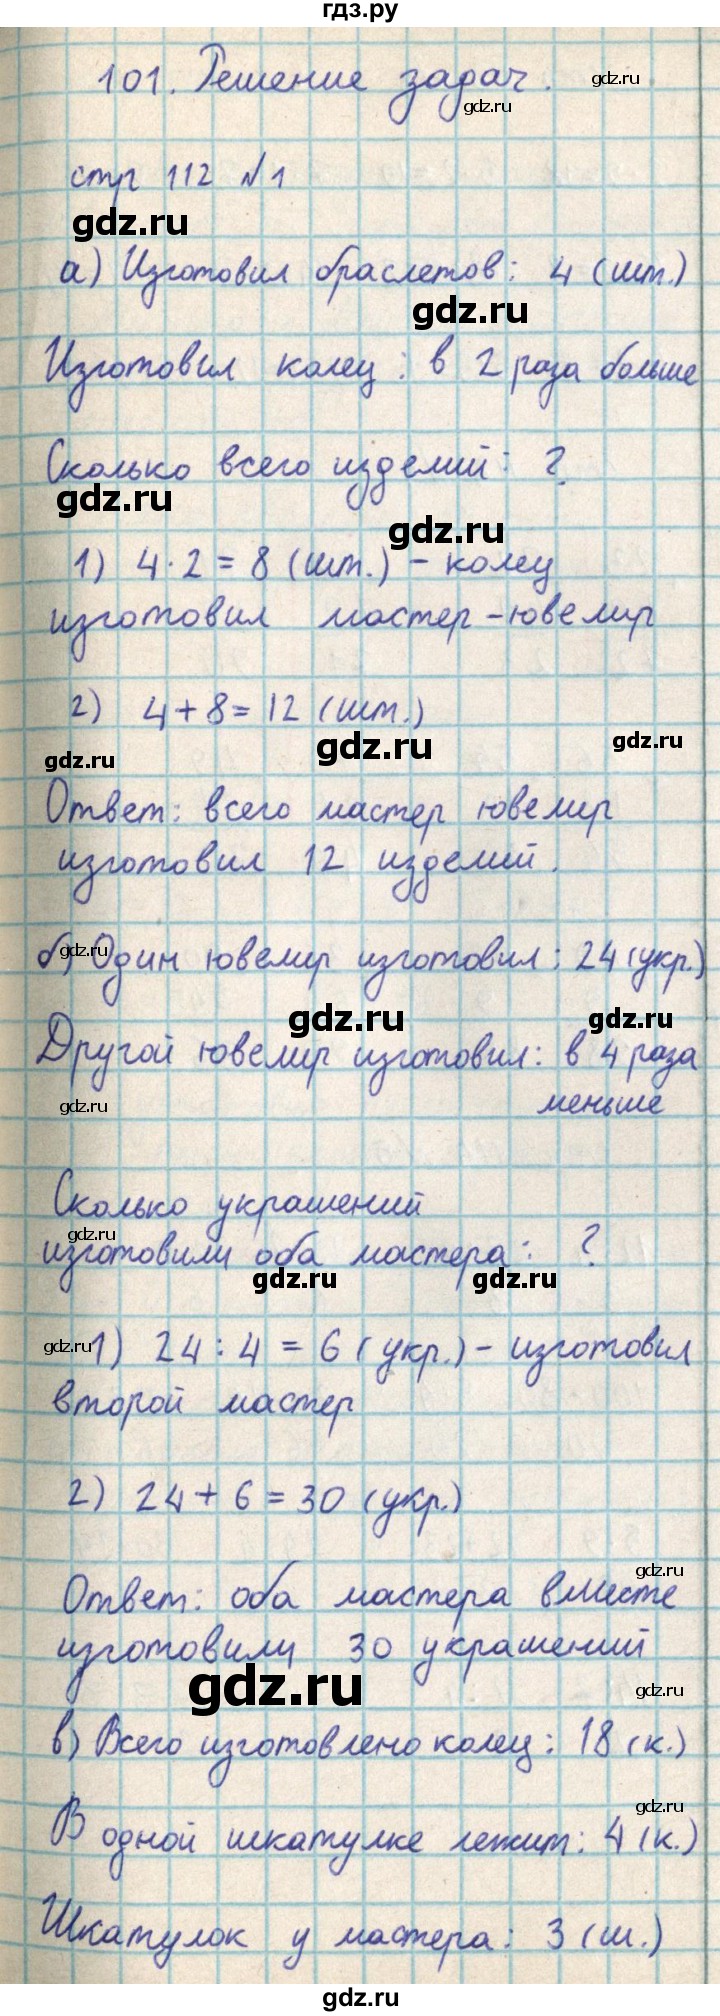 гдз.ру
101. Решение задач.
стр 112 №1
а) Изготовил браслетов: 4 (шт.)
Изготовил колец: в 2 раза больше
Сколько всего изделий: ?
1) 4·2=8 (шт.) - колец
изготовил мастер-ювелир
2) 4+8=12 (шт.)
Ответ: всего мастер ювелир
изготовил 12 изделий.
б) Один ювелир изготовил: 24 (укр.)
Другой ювелир изготовил: в 4 раза
меньше
Сколько украшений
изготовили оба мастера: ?
1) 24:4=6 (укр.) - изготовил
второй мастер
2) 24+6=30 (укр.)
Ответ: оба мастера вместе
изготовили 30 украшений
в) Всего изготовлено колец: 18 (к.)
В одной шкатулке лежит: 4 (к.)
Шкатулок у мастера: 3 (ш.)
gdz.ru